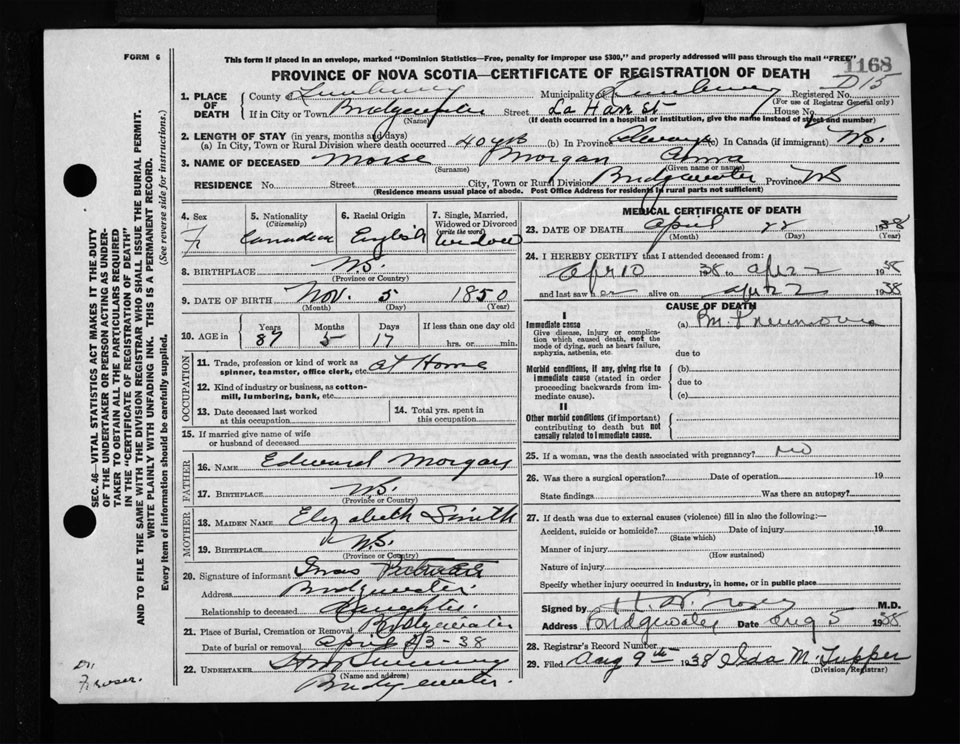 FORM 6
This form if placed in an envelope, marked "Dominion Statistics—Free, penalty for improper use $300," and properly addressed will pass through the mail "FREE"
1168
PROVINCE OF NOVA SCOTIA—CERTIFICATE OF REGISTRATION OF DEATH
D/5
1. PLACE OF DEATH
County Lunenburg Municipality Lunenburg Registered No.
(For use of Registrar General only)
If in City or Town Bridgewater Street La Have St House No.
(Name) (If death occurred in a hospital or institution, give the name instead of street and number)
2. LENGTH OF STAY (in years, months and days)
(a) In City, Town or Rural Division where death occurred 40 yrs (b) In Province Always (c) In Canada (if immigrant)
3. NAME OF DECEASED Morse Morgan Anna
(Surname) (Given name or names)
RESIDENCE No. Street City, Town or Rural Division Bridgewater Province NS
(Residence means usual place of abode. Post Office Address for residents in rural parts not sufficient)
4. Sex F
5. Nationality (Citizenship) Canadian
6. Racial Origin English
7. Single, Married, Widowed or Divorced (write the word) Widow
8. BIRTHPLACE N.S.
(Province or Country)
9. DATE OF BIRTH Nov. 5 1850
(Month) (Day) (Year)
10. AGE in Years Months Days If less than one day old
87 5 17 hrs. or min.
OCCUPATION
11. Trade, profession or kind of work as spinner, teamster, office clerk, etc. at Home
12. Kind of industry or business, as cotton-mill, lumbering, bank, etc.
13. Date deceased last worked at this occupation
14. Total yrs. spent in this occupation
15. If married give name of wife or husband of deceased
FATHER
16. NAME Edward Morgan
17. BIRTHPLACE N.S.
(Province or Country)
MOTHER
18. MAIDEN NAME Elizabeth Smith
19. BIRTHPLACE N.S.
(Province or Country)
20. Signature of informant
Address Bridgewater
Relationship to deceased Daughter
21. Place of Burial, Cremation or Removal Bridgewater
Date of burial or removal April 23-38
22. UNDERTAKER
(Name and address)
Bridgewater
MEDICAL CERTIFICATE OF DEATH
23. DATE OF DEATH April 22 1938
(Month) (Day)
24. I HEREBY CERTIFY that I attended deceased from:
Apr 10 1938 to Apr 22 1938
and last saw her alive on Apr 22 1938
CAUSE OF DEATH
I
Immediate cause
Give disease, injury or complication which caused death, not the mode of dying, such as heart failure, asphyxia, asthenia, etc.
(a) Pneumonia
due to
Morbid conditions, if any, giving rise to immediate cause (stated in order proceeding backwards from immediate cause).
(b)
due to
(c)
II
Other morbid conditions (if important) contributing to death but not causally related to immediate cause.
25. If a woman, was the death associated with pregnancy? no
26. Was there a surgical operation? Date of operation 19
State findings Was there an autopsy?
27. If death was due to external causes (violence) fill in also the following:—
Accident, suicide or homicide? Date of injury 19
(State which)
Manner of injury
(How sustained)
Nature of injury
Specify whether injury occurred in industry, in home, or in public place
Signed by M.D.
Address Bridgewater Date Aug 5 1938
28. Registrar's Record Number
29. Filed Aug 9th 1938 Ida M. Tupper
(Division Registrar)
SEC. 46—VITAL STATISTICS ACT MAKES IT THE DUTY
OF THE UNDERTAKER OR PERSON ACTING AS UNDER-
TAKER TO OBTAIN ALL THE PARTICULARS REQUIRED
IN THE "CERTIFICATE OF REGISTRATION OF DEATH"
AND TO FILE THE SAME WITH THE DIVISION REGISTRAR WHO SHALL ISSUE THE BURIAL PERMIT.
WRITE PLAINLY WITH UNFADING INK. THIS IS A PERMANENT RECORD.
Every item of information should be carefully supplied. (See reverse side for instructions.)
Dr.